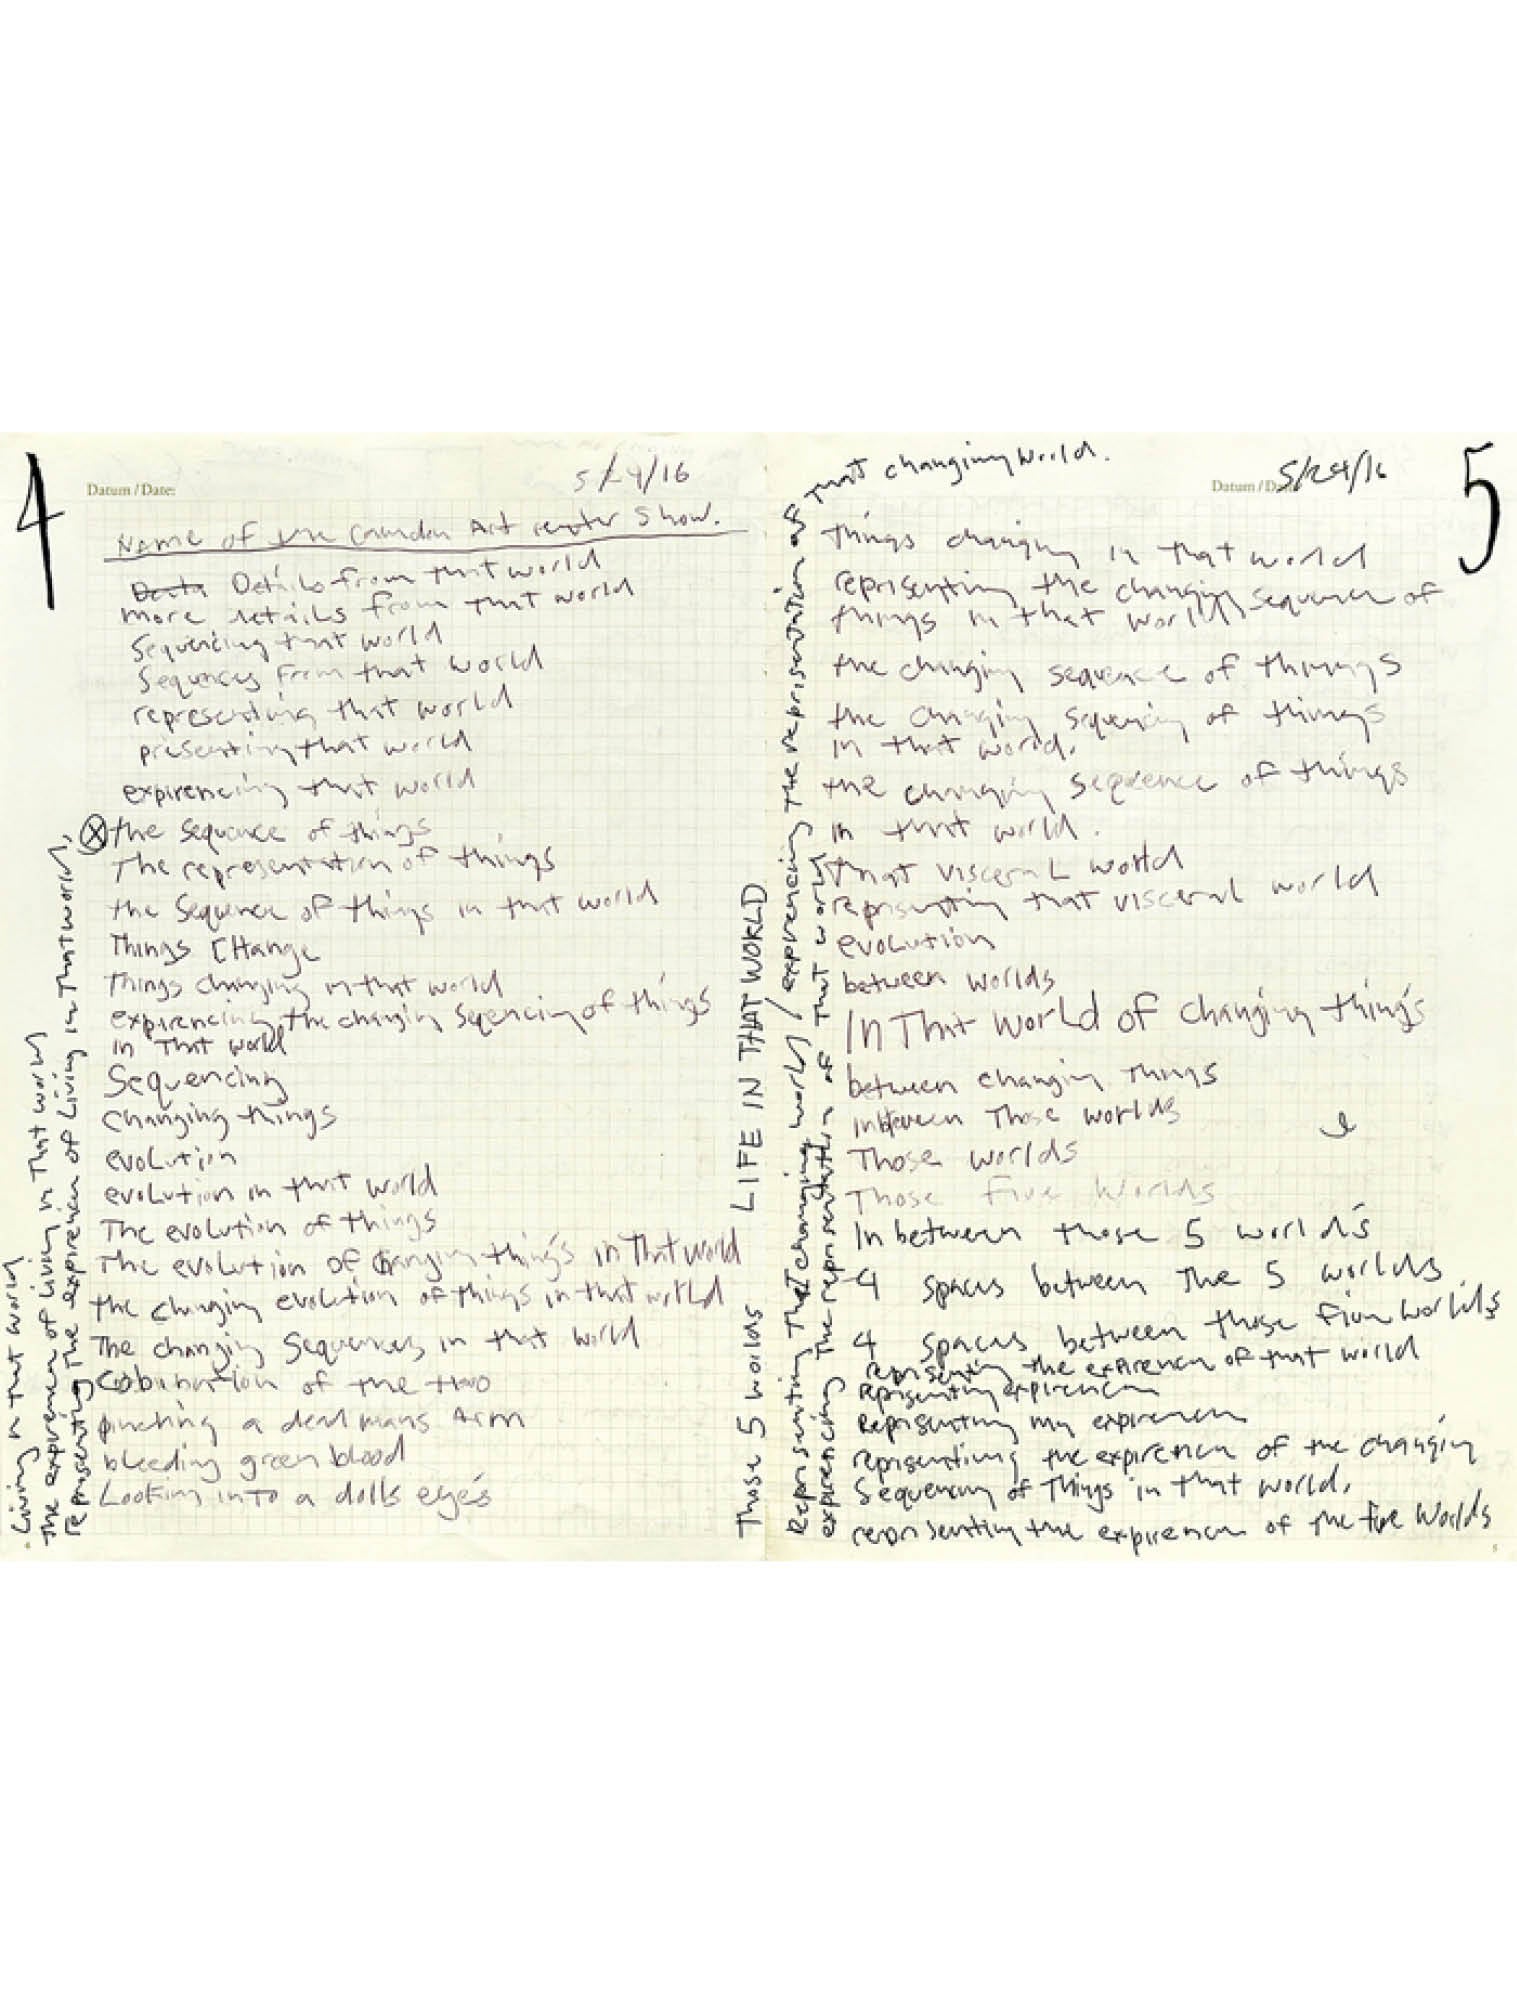 4
Datum / Date:
5/24/16
Name of the Camden Art center Show.
Data Details from that world
more details from that world
Sequencing that world
Sequences From that world
representing that world
presenting that world
expirencing that world
the sequence of things
The representation of things
the Sequence of things in that world
Things CHange
Things changing in that world
expirencing the changing Seqencing of things
in That world
Sequencing
Changing things
evolution
evolution in that world
The evolution of things
The evolution of changing things in That world
the changing evolution of things in that world
The changing Sequences in that world
of the two
pinching a dead mans Arm
bleeding green blood
Looking into a dolls eye's
Living in that world
the expirence of Living in That world
representing The expirence of Living in That world,
Those 5 worlds LIFE IN THAT WORLD
5
Datum / Date:
5/24/16
Representing That changing world / expirencing The reprisentation of That changing World.
expirencing The representation of That world
Things changing in that world
reprisenting the changing sequence of
things in that world
the changing sequence of things
the changing sequencing of things
in that world.
the changing sequence of things
in that world.
That visceral world
reprisenting that visceral world
evolution
between worlds
In That World of changing things
between changing Things
inbetween Those worlds
Those worlds
Those five Worlds
In between those 5 world's
4 spaces between The 5 worlds
4 spaces between those five world's
reprisenting the expirence of that world
reprisenting expirence
Reprisenting my expirence
reprisenting the expirence of the changing
Sequencing of Things in that world.
reprisenting the expirence of the five Worlds
5